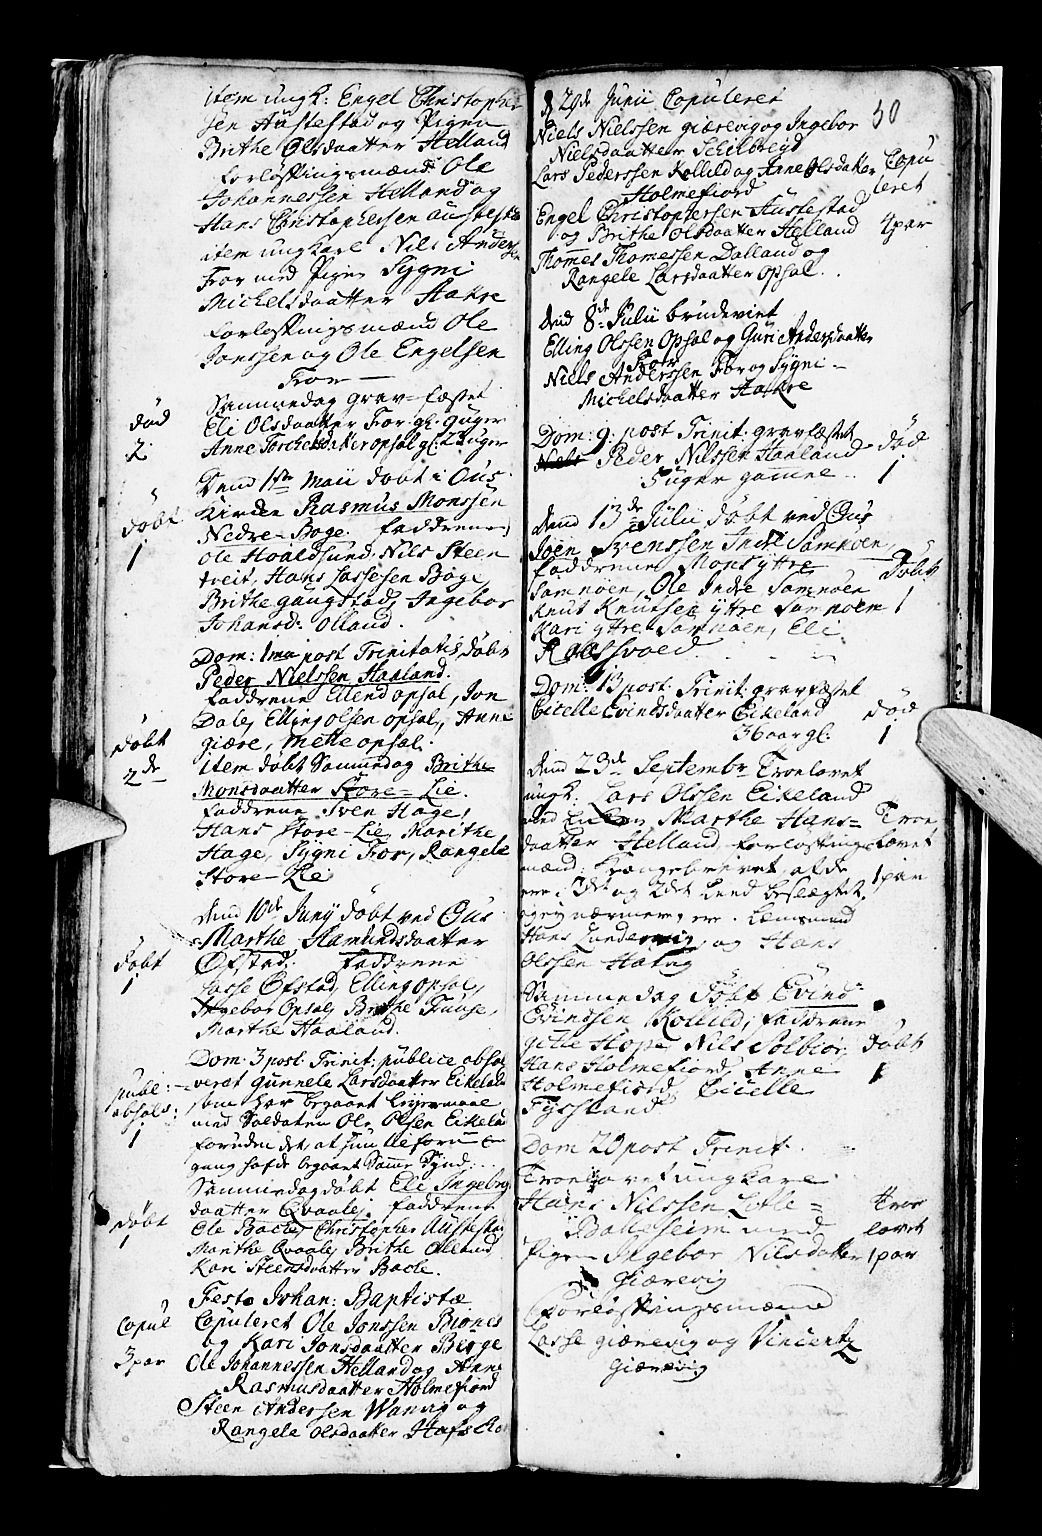 item ungk: Engel Christopher
sen Austestad og Pigen
Brithe Olsdaatter Helland
forløfningsmænd Ole
Johannessen Helland og
Hans Christophersen Austestad
item ungkarl Nils Anders
sen
Froe med Pigen Sygni
Michelsdaatter Aakre
forløfningsmænd Ole
Jonssen og Ole Engelsen
Froe
død
2.
Sammedag grav-fæstet
Eli Olsdaatter Froe gl: 9 uger
Anne Torchelsdatter Opsal gl: 2 uger
døbt
1
Dend 1ste Maii døbt i Ous
Kircke Rasmus Monssen
Nedre-Bøge. faddrene
Ole Hoaldsund, Nils Steen
treit, Hans Lassesen Bøge,
Brithe gangstad, Ingebor
Johansd: Olland.
Dom: 1ma post Trinitatis døbt
Peder Nielssen Haaland.
faddrene Ellend Opsal, Jon
Dale, Elling Olsen Opsal, Anne
giære, Mette Opsal.
døbt
2de
item døbt Sammedag Brithe
Monsdaatter Store-Lie.
faddrene Sven Hage,
Hans Store-Lie, Marithe
Hage, Sygni Froe, Rangele
Store-Lie
døbt
1
dend 10de Junij døbt ved Ous
Marthe Aamundsdaatter
Øfstad. faddrene
Lasse Øfstad, Elling Opsal,
Ingebor Opsal, Brithe Fuuse,
Marthe Haaland.
publ:
absolv:
1
Dom: 3 post Trinit: publice absol
veret gunnele Larsdaatter Eikeland
som har begaaet leyermaal
med Soldaten Ole Olsen Eikeland
foruden det at hun tilforn en
gang hafde begaaet Samme Synd.
døbt
1
Sammedag døbt Eli Ingebrig
daatter Qvaale, faddrene
Ole Backe, Christopher Austestad
Marthe Qvaale, Brithe Olland
Kari Steensdaatter Backe.
Festo Johan: Baptistæ
Copul
3 par
Copuleret Ole Jonssen Biønes
og Kari Jonsdaatter Berge
Ole Johannessen Helland og Anne
Rasmusdaatter Holmefiord
Steen Andersen Waage og
Rangele Olsdaatter
50
d 29de Junii Copuleret
Niels Nielssen giærevig og Ingebor
Nielsdaatter Schilbreid
Lars Pederssen Kollild og Anne Olsdatter
Holmefiord
Copu
leret
4 par
Engel Christophersen Austestad
og Brithe Olsdaatter Helland
Thomes Thomessen Dalland og
Rangele Larsdaatter Opsal.
dend 8de Julii brudeviet
Elling Olssen Opsal og Guri Andersdaatter
Froe
Niels Anderssen Froe og Sygni
Michelsdaatter Aakre
Dom: 9: post Trinit: gravfæstet
Niels Peder Nilssen Haaland
5 uger gamme
død
1
dend 13de Julii døbt ved Ous
Joen Svenssen Indre Samnøen,
faddrene Mons Yttre
Samnøen, Ole Indre Samnøen
Knut Knutsen yttre Samnøen
Kari yttre Samnøen, Eli
døbt
1
Dom: 13 post Trinit: gravfæstet
Citelle Evindsdaatter Eikeland
36 aar gl:
død
1
dend 23de Septembr Troelovet
ungk: Lars Olssen Eikeland
med Enken Marthe Hans=
daatter Helland, forløftnings
mænd
ere 3det og 2det Leed beslægtet,
og ey nærmere, ere Lensmand
Hans Lundervig, og Hans
Olssen Hatvig
Troe
lovet
1 par
Sammedag døbt Evind
Evindsen Kollild, faddrene
gitle Hope, Nils Solbiør,
Hans Holmefiord, Anne
Holmefiord, Citelle
døbt
1
Dom 20 post Trinit:
Troelovet ungkarl
Hans Nilssen Litle=
Balleseim med
Pigen Ingebor Nilsdatter
giærevig
Troe
lovet
1 par
Forløfningsmænd
Lasse giærevig og Vincentz
giærevig